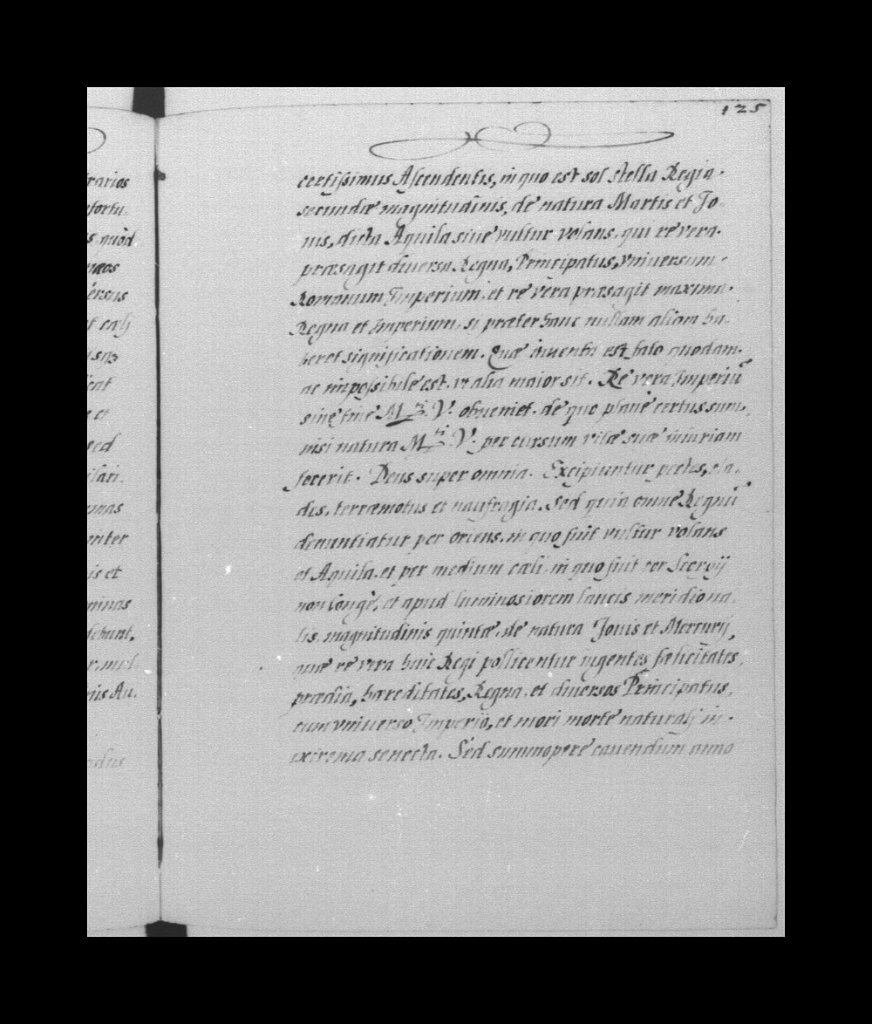 125
certissimus Ascendentis, in quo est sol stella Regia
secundæ magnitudinis, de natura Martis et Jo
uis, dicta Aquila siue vultur volans, qui re vera
præsagit diuersa Regna, Principatus, vniuersum
Romanum Imperium, et re vera præsagit maxima
Regna et Imperium, si præter hanc nullam aliam ha
beret significationem. Quæ inuenta est fato quodam
ac impossibile est, vt alia maior sit. Re vera Imperiū
sine fine M.tis V. obueniet, de quo planè certus sum,
nisi natura M.ti V. per cursum vitæ suæ iniuriam
fecerit. Deus super omnia. Excipiuntur pestes, cla
dis, terræmotus et naufragia, sed quia omne Regnū
denuntiatur per oriens, in quo fuit vultur volans
et Aquila, et per medium cæli, in quo fuit cor Scorpij
non longè, et apud luminosiorem lancis meridiona
lis, magnitudinis quintæ, de natura Jouis et Mercurij,
quæ re vera huic Regi pollicentur ingentes fælicitates,
prædia, hæreditates, Regna, et diuersos Principatus,
cum vniuerso Imperio, et mori morte naturali in
extrema senecta. Sed summopere cauendum anno
rarios
fortu
quòd
ersus
cælj
icat
et
sed
ilari
mas
nter
is et
minas
debunt,
nis Au